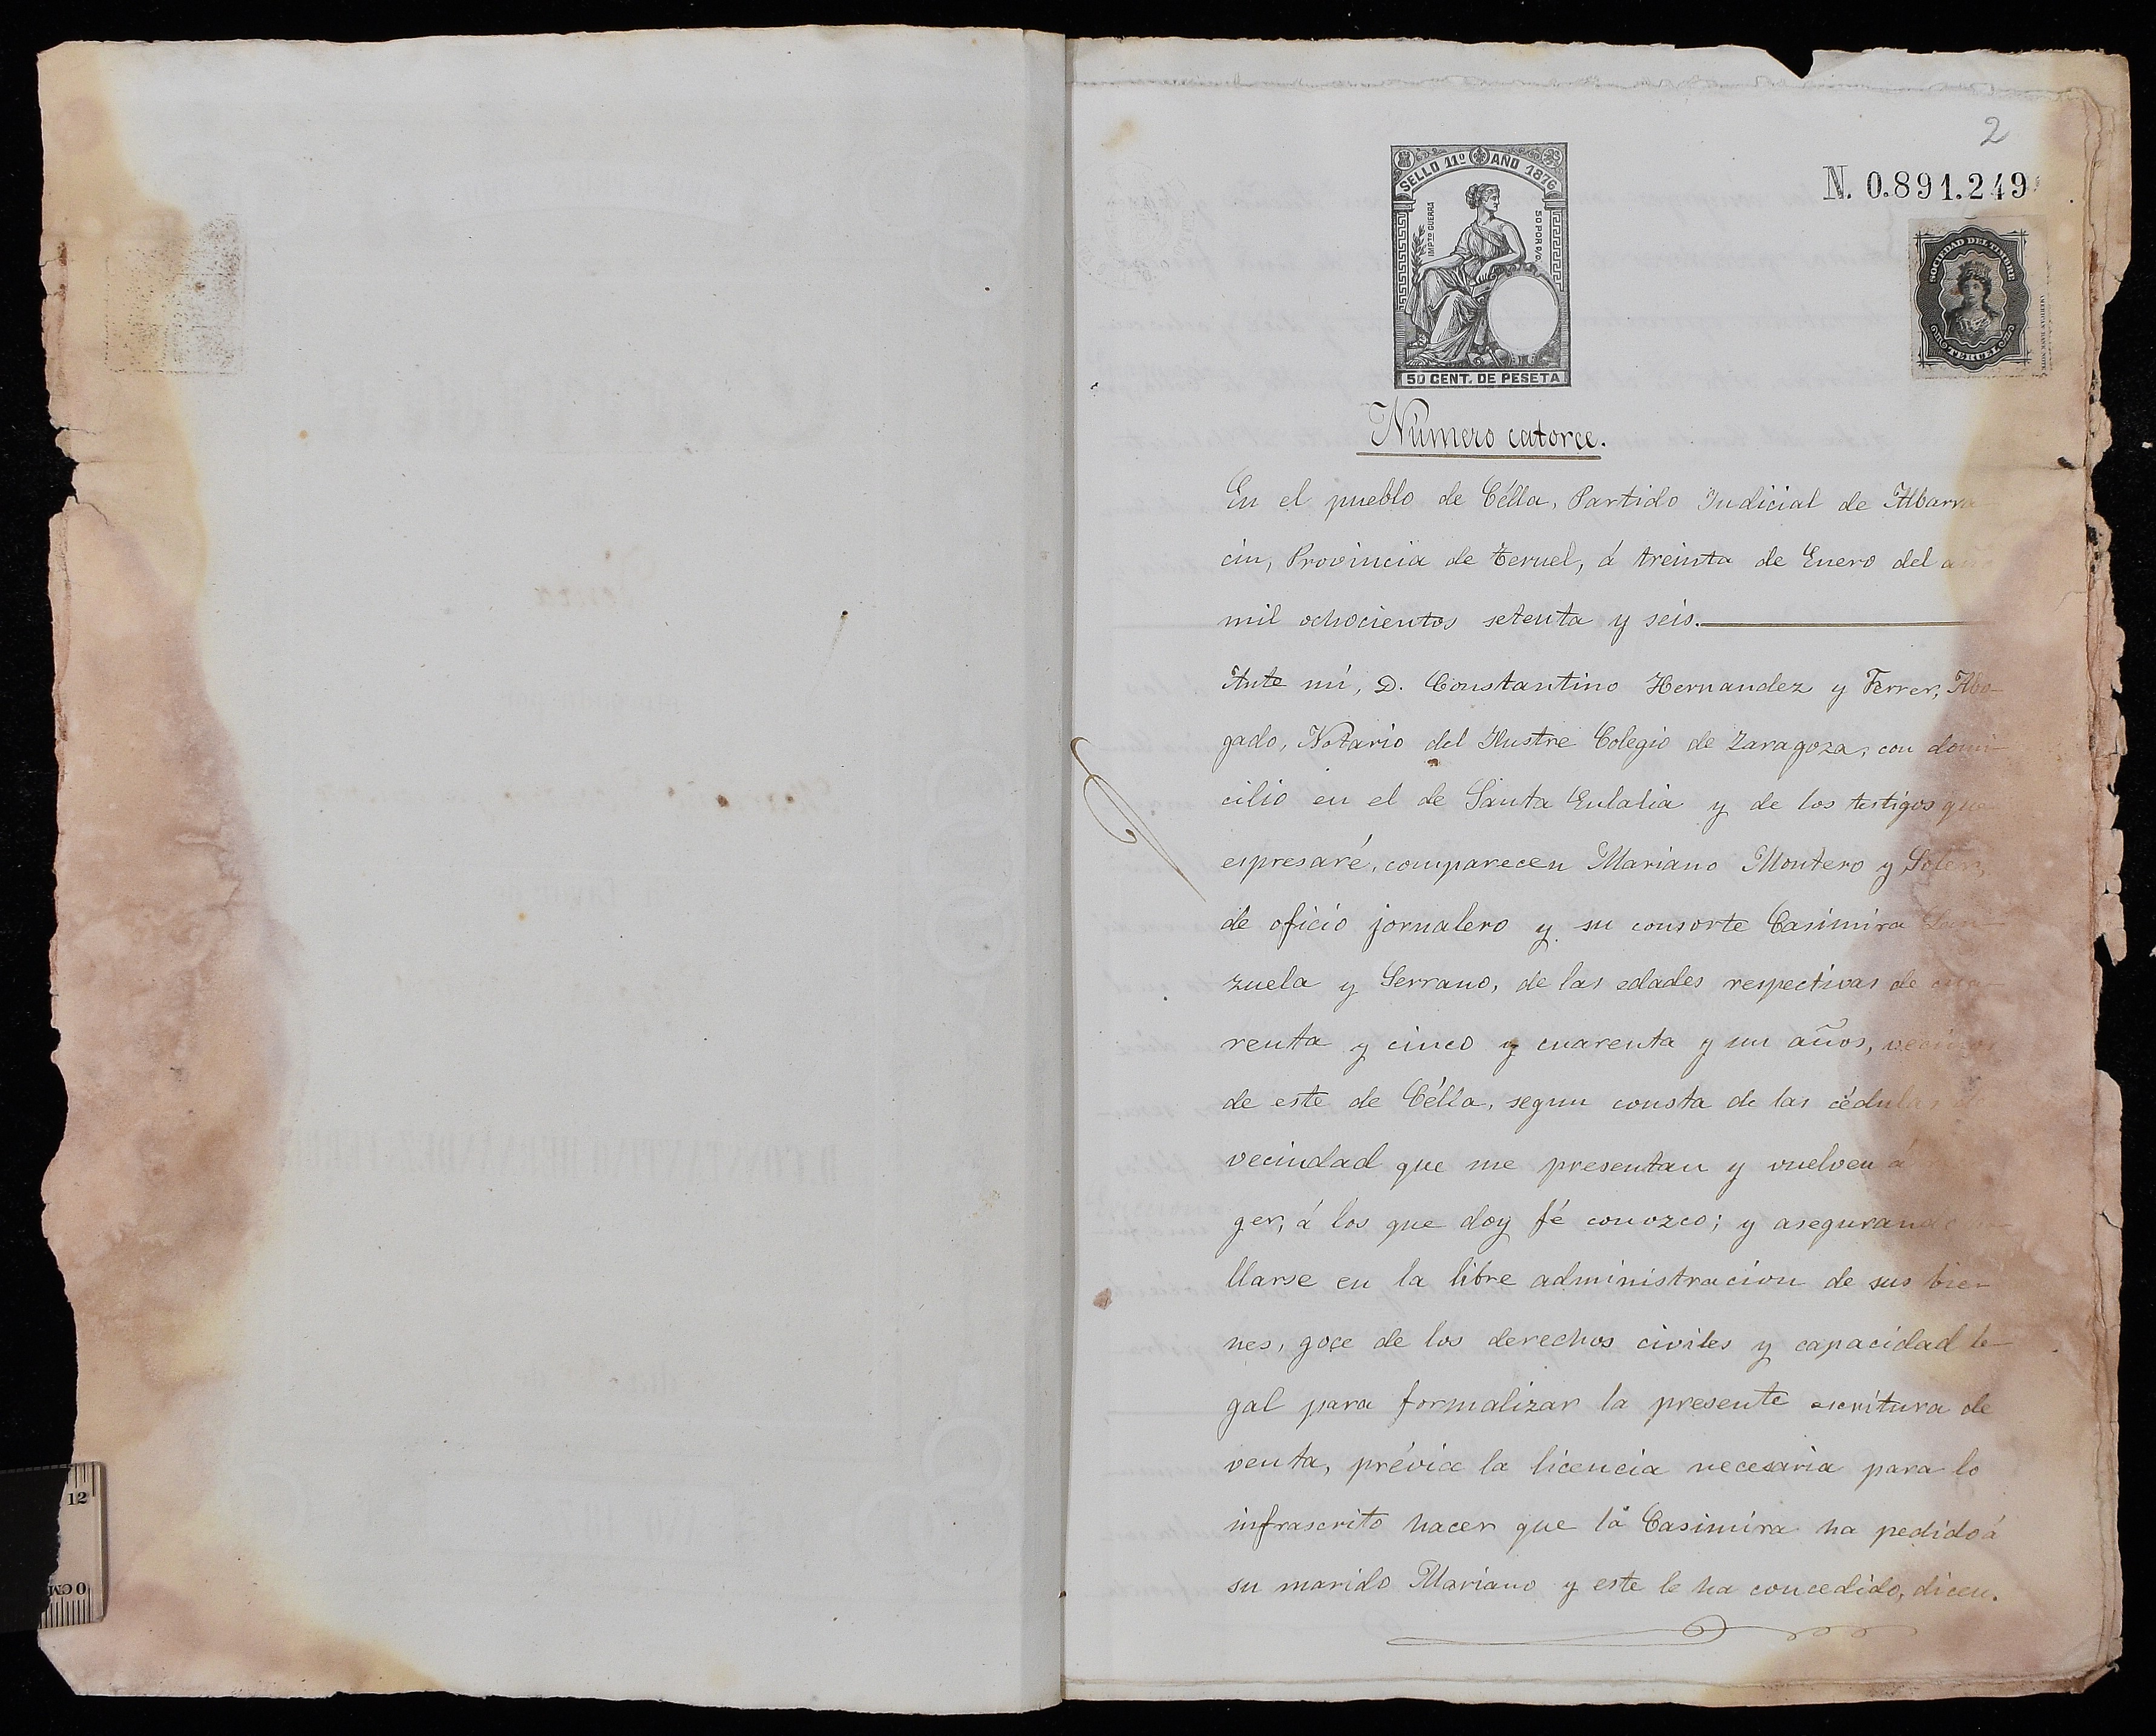 2
N. 0.891.249
SELLO 11º AÑO 1876
IMPTO GUERRA
50 POR %
50 CENT. DE PESETA
SOCIEDAD DEL TIMBRE
TERUEL
Número catorce.
En el pueblo de Célla, Partido Judicial de Albarra
cin, Provincia de Teruel, á treinta de Enero del año
mil ochocientos setenta y seis.
Ante mí, D. Constantino Hernandez y Ferrer, Abo-
gado, Notario del Ilustre Colegio de Zaragoza, con domi-
cilio en el de Santa Eulalia y de los testigos que
espresaré, comparecen Mariano Montero y Soler,
de oficio jornalero y su consorte Casimira Lan-
zuela y Serrano, de las edades respectivas de cua-
renta y cinco y cuarenta y un años, vecinos
de este de Célla, segun consta de las cédulas de
vecindad que me presentan y vuelven á
ger, á los que doy fé conozco; y asegurando
llarse en la libre administracion de sus bie-
nes, goce de los derechos civiles y capacidad le-
gal para formalizar la presente escritura de
venta, prévia la licencia necesaria para lo
infrascrito hacer que la Casimira ha pedido á
su marido Mariano y este le ha concedido, dicen.
12
0 CM